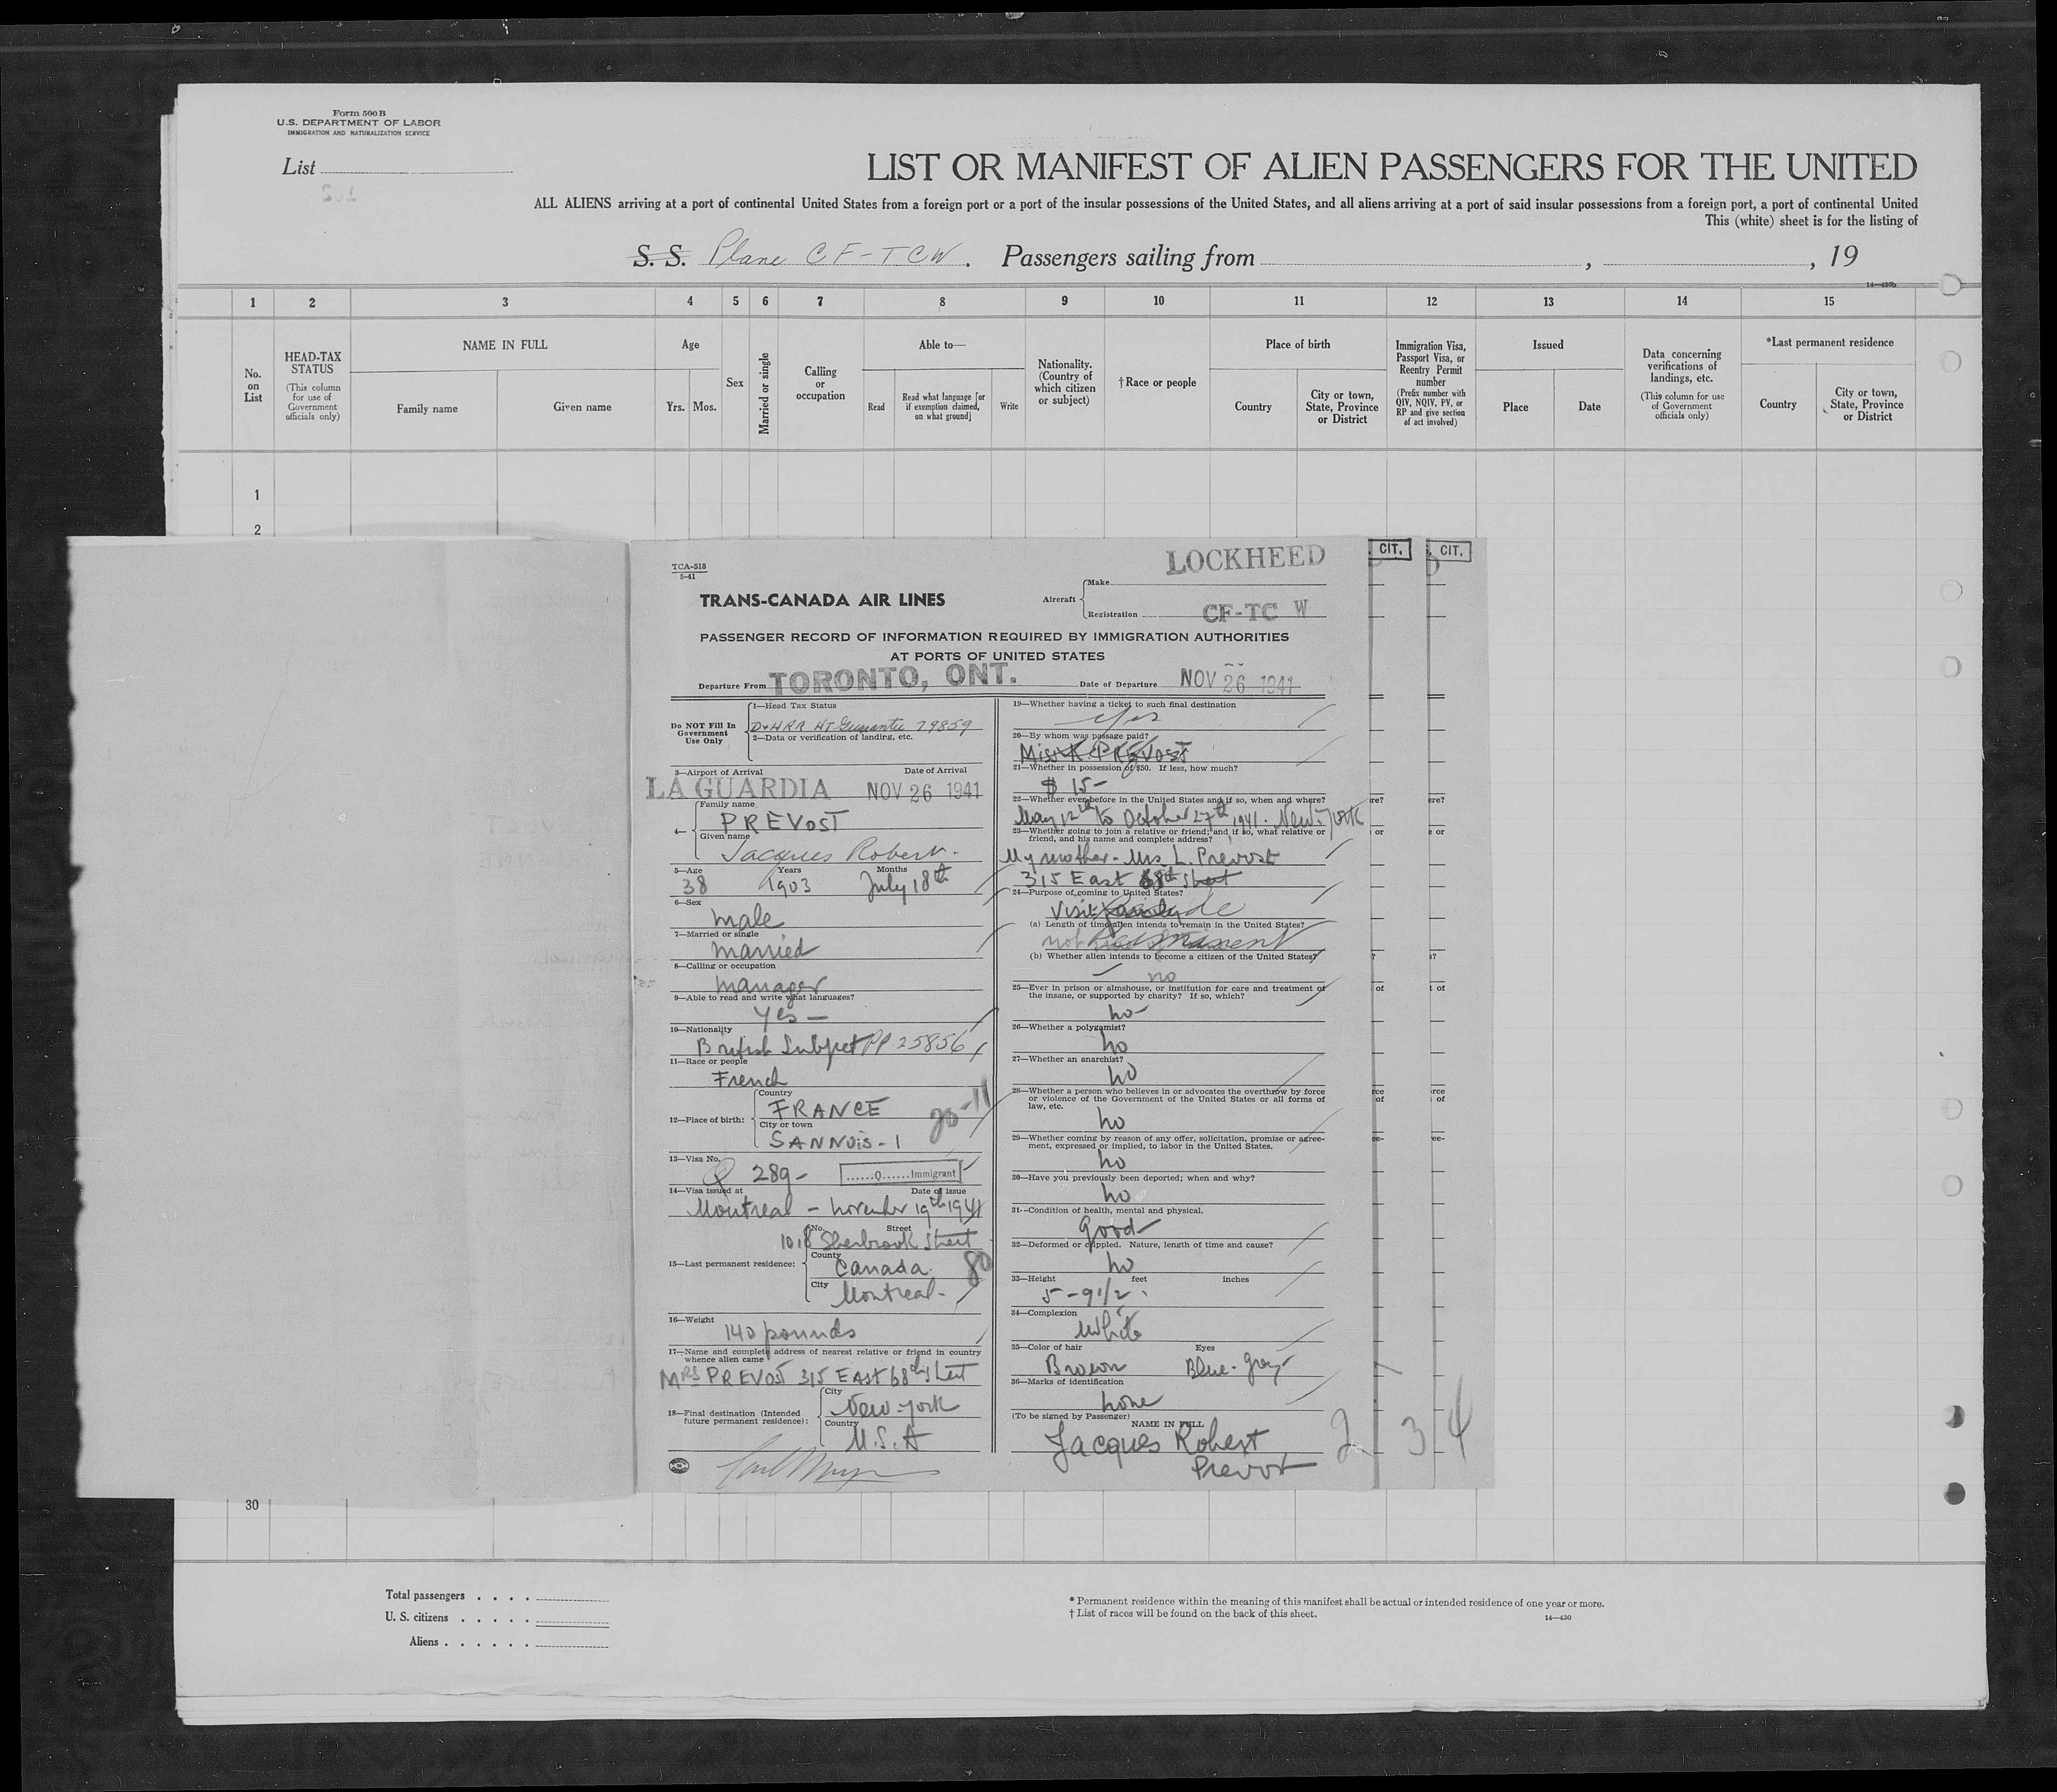 Form 500 B
U.S. DEPARTMENT OF LABOR
IMMIGRATION AND NATURALIZATION SERVICE
List
LIST OR MANIFEST OF ALIEN PASSENGERS FOR THE UNITED
ALL ALIENS arriving at a port of continental United States from a foreign port or a port of the insular possessions of the United States, and all aliens arriving at a port of said insular possessions from a foreign port, a port of continental United
This (white) sheet is for the listing of
S. S. Plane CF-TCW. Passengers sailing from , , 19
14—430b
1 2 3 4 5 6 7 8 9 10 11 12 13 14 15
No. on List
HEAD-TAX STATUS
(This column for use of Government officials only)
NAME IN FULL
Family name Given name
Age
Yrs. Mos.
Sex
Married or single
Calling or occupation
Able to—
Read
Read what language [or if exemption claimed, on what ground]
Write
Nationality. (Country of which citizen or subject)
†Race or people
Place of birth
Country
City or town, State, Province or District
Immigration Visa, Passport Visa, or Reentry Permit number
(Prefix number with QIV, NQIV, PV, or RP and give section of act involved)
Issued
Place Date
Data concerning verifications of landings, etc.
(This column for use of Government officials only)
*Last permanent residence
Country
City or town, State, Province or District
1
2
TCA-518
5-41
LOCKHEED
TRANS-CANADA AIR LINES
Aircraft
Make
Registration CF-TC W
PASSENGER RECORD OF INFORMATION REQUIRED BY IMMIGRATION AUTHORITIES
AT PORTS OF UNITED STATES
Departure From TORONTO, ONT. Date of Departure NOV 26 1941
Do NOT Fill In
Government
Use Only
1—Head Tax Status
D+HRR HT Guarantee 79859
2—Data or verification of landing, etc.
3—Airport of Arrival Date of Arrival
LA GUARDIA NOV 26 1941
4—
Family name
PREVOST
Given name
Jacques Robert.
5—Age Years Months
38 1903 July 18th
6—Sex
male
7—Married or single
married
8—Calling or occupation
manager
9—Able to read and write what languages?
Yes —
10—Nationality
British Subject PP 25856
11—Race or people
French
12—Place of birth:
Country
FRANCE
City or town
SANNOIS - 1
20-11
13—Visa No.
Q 289- ......Q......Immigrant
14—Visa issued at Date of issue
Montreal - november 19th 1941
No. Street
1018 Sherbrook Street
15—Last permanent residence:
County
Canada.
80
City
Montreal-
16—Weight
140 pounds
17—Name and complete address of nearest relative or friend in country
whence alien came
MRS PREVOST 315 EAST 68th Street
18—Final destination (Intended
future permanent residence):
City
New-york
Country
U.S.A
19—Whether having a ticket to such final destination
yes
20—By whom was passage paid?
PREVOST
21—Whether in possession of $50. If less, how much?
$ 15-
22—Whether ever before in the United States and if so, when and where?
May 12th to October 27th 1941. New-York
23—Whether going to join a relative or friend; and if so, what relative or
friend, and his name and complete address?
My mother - Mrs. L. Prevost
315 East 68th Street
24—Purpose of coming to United States?
Visit family
(a) Length of time alien intends to remain in the United States?
Permanent
(b) Whether alien intends to become a citizen of the United States?
no
25—Ever in prison or almshouse, or institution for care and treatment of
the insane, or supported by charity? If so, which?
no-
26—Whether a polygamist?
no
27—Whether an anarchist?
no
28—Whether a person who believes in or advocates the overthrow by force
or violence of the Government of the United States or all forms of
law, etc.
no
29—Whether coming by reason of any offer, solicitation, promise or agree-
ment, expressed or implied, to labor in the United States.
no
30—Have you previously been deported; when and why?
no
31—Condition of health, mental and physical.
good
32—Deformed or crippled. Nature, length of time and cause?
no
33—Height feet inches
5-9 1/2
34—Complexion
White
35—Color of hair Eyes
Brown Blue-gray
36—Marks of identification
none
(To be signed by Passenger)
NAME IN FULL
Jacques Robert
Prevost
CIT. CIT.
re? ere?
or e or
? s?
of t of
rce rce
of of
ee- ree-
2 3 4
30
Total passengers . . . .
U. S. citizens . . . . .
Aliens . . . . . .
* Permanent residence within the meaning of this manifest shall be actual or intended residence of one year or more.
† List of races will be found on the back of this sheet.
14—430